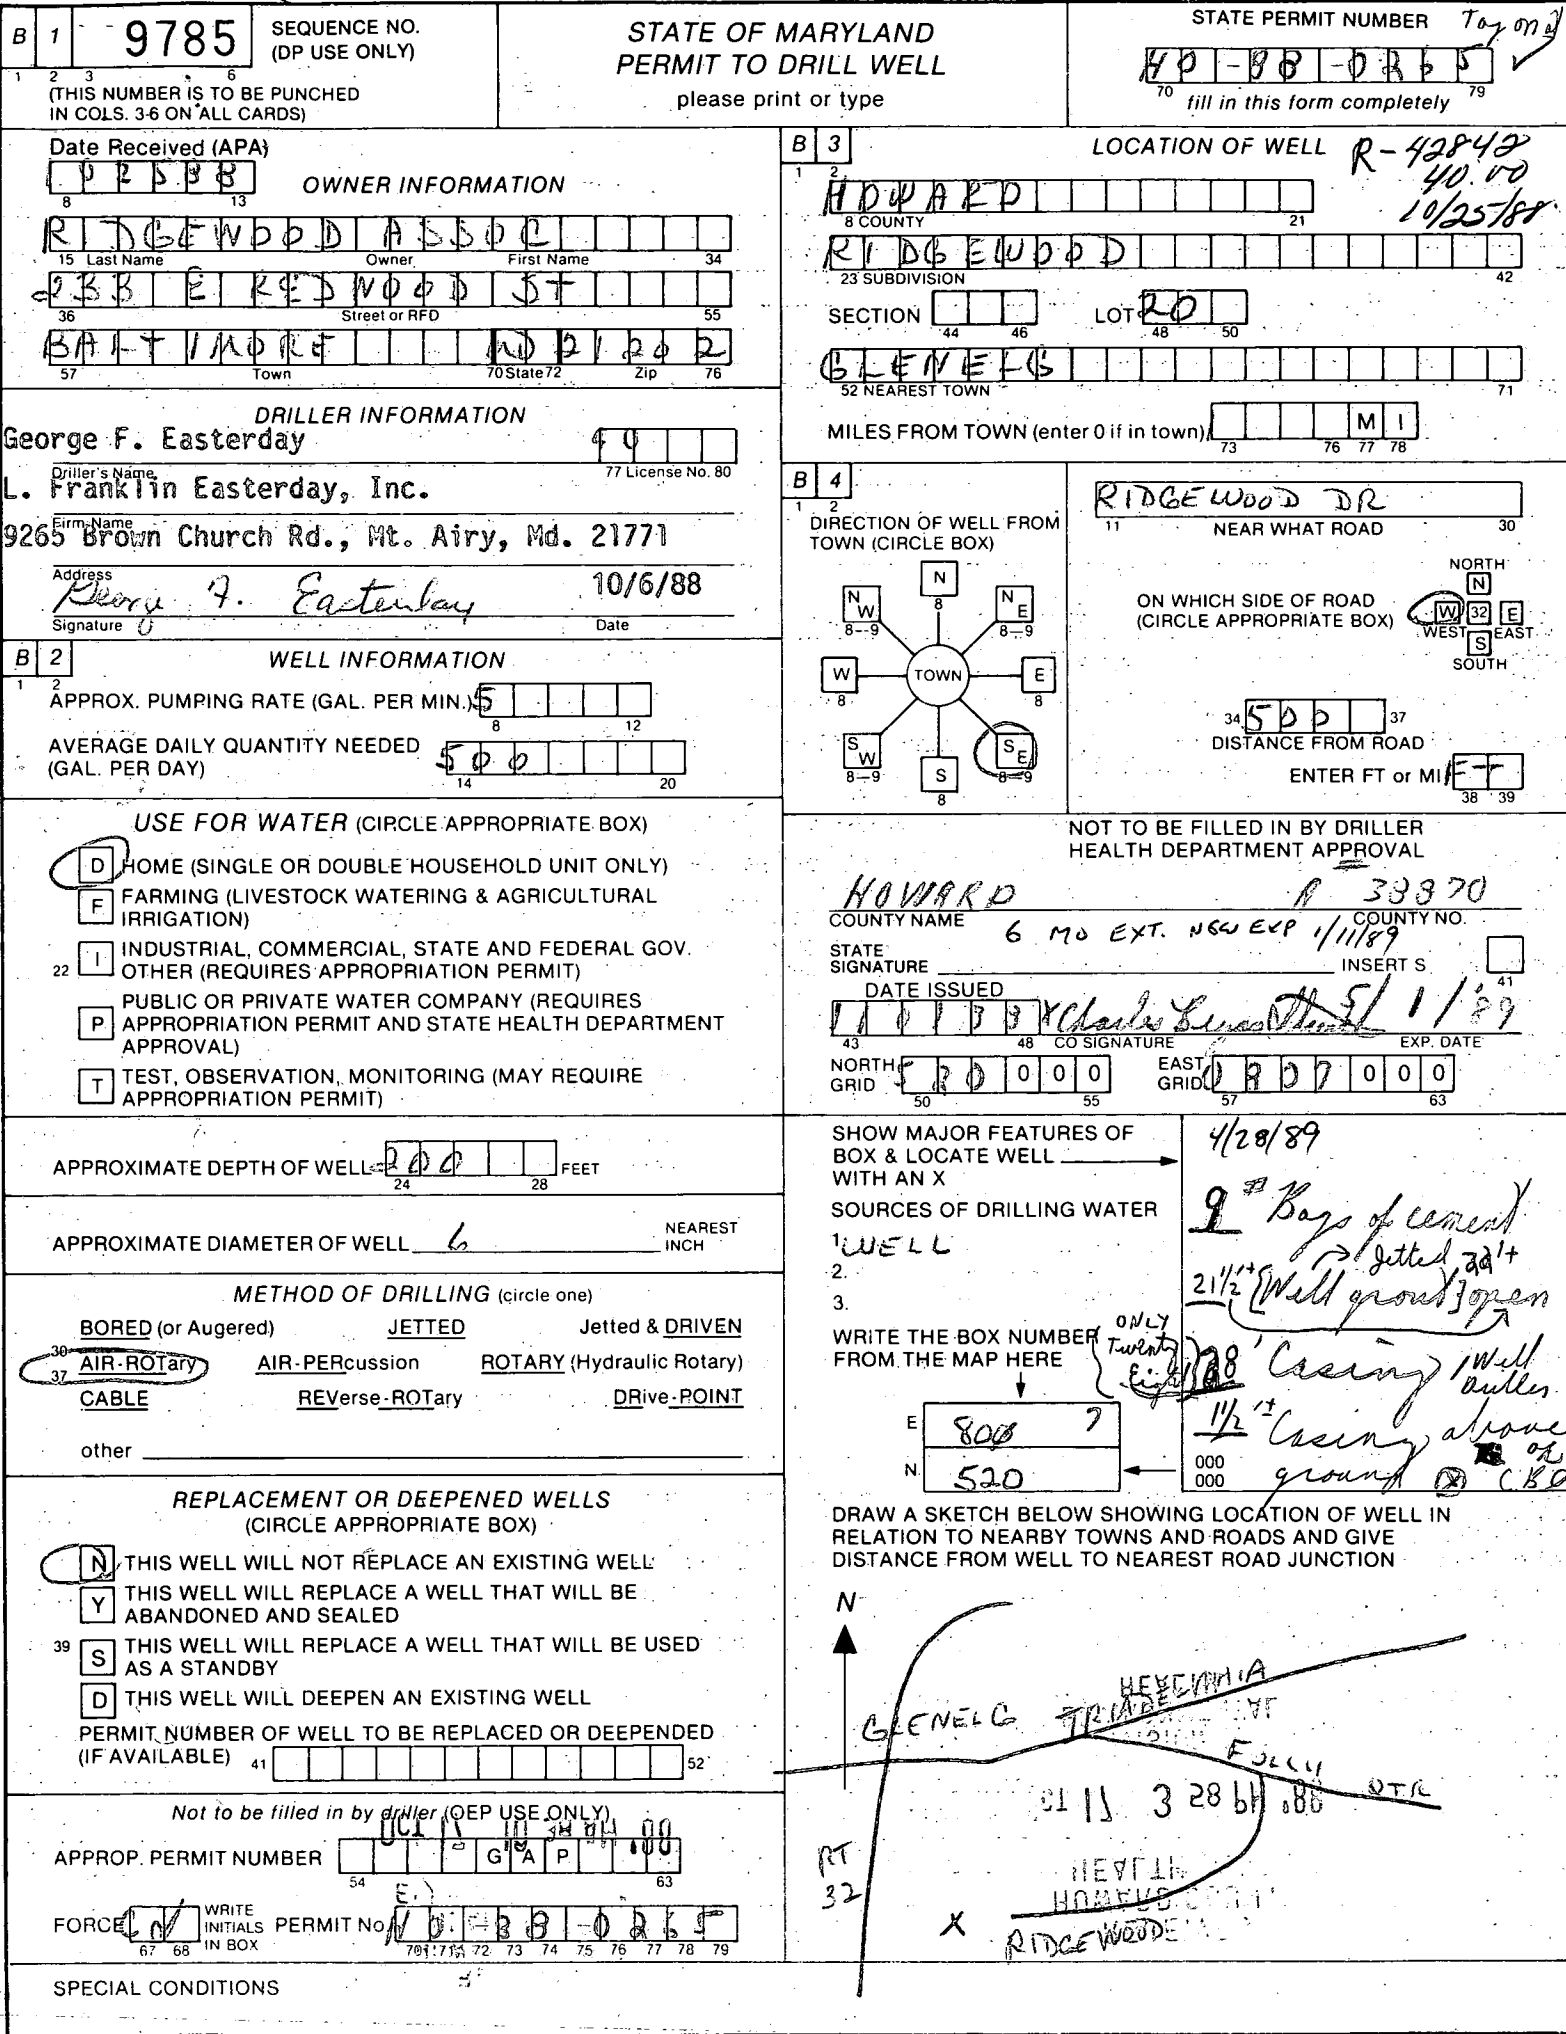 B 1 9785 SEQUENCE NO. (DP USE ONLY)
1 2 3 6
(THIS NUMBER IS TO BE PUNCHED
IN COLS. 3-6 ON ALL CARDS)
STATE OF MARYLAND
PERMIT TO DRILL WELL
please print or type
STATE PERMIT NUMBER
HO-88-0265
70 fill in this form completely 79
Date Received (APA)
8 13
OWNER INFORMATION
RIDGEWOOD ASSOC
15 Last Name Owner First Name 34
233 E REDWOOD ST
36 Street or RFD 55
BALTIMORE MD 21202
57 Town 70 State 72 Zip 76
DRILLER INFORMATION
George F. Easterday 40
Driller's Name 77 License No. 80
L. Franklin Easterday, Inc.
Firm Name
9265 Brown Church Rd., Mt. Airy, Md. 21771
Address
George F. Easterday 10/6/88
Signature Date
B 2 WELL INFORMATION
1 2
APPROX. PUMPING RATE (GAL. PER MIN.) 5
8 12
AVERAGE DAILY QUANTITY NEEDED
(GAL. PER DAY) 500
14 20
USE FOR WATER (CIRCLE APPROPRIATE BOX)
D HOME (SINGLE OR DOUBLE HOUSEHOLD UNIT ONLY)
F FARMING (LIVESTOCK WATERING & AGRICULTURAL
IRRIGATION)
22 I INDUSTRIAL, COMMERCIAL, STATE AND FEDERAL GOV.
OTHER (REQUIRES APPROPRIATION PERMIT)
P PUBLIC OR PRIVATE WATER COMPANY (REQUIRES
APPROPRIATION PERMIT AND STATE HEALTH DEPARTMENT
APPROVAL)
T TEST, OBSERVATION, MONITORING (MAY REQUIRE
APPROPRIATION PERMIT)
APPROXIMATE DEPTH OF WELL 200 FEET
24 28
APPROXIMATE DIAMETER OF WELL 6 NEAREST
INCH
METHOD OF DRILLING (circle one)
BORED (or Augered) JETTED Jetted & DRIVEN
30 37 AIR-ROTary AIR-PERcussion ROTARY (Hydraulic Rotary)
CABLE REVerse-ROTary DRive-POINT
other
REPLACEMENT OR DEEPENED WELLS
(CIRCLE APPROPRIATE BOX)
N THIS WELL WILL NOT REPLACE AN EXISTING WELL
Y THIS WELL WILL REPLACE A WELL THAT WILL BE
ABANDONED AND SEALED
39 S THIS WELL WILL REPLACE A WELL THAT WILL BE USED
AS A STANDBY
D THIS WELL WILL DEEPEN AN EXISTING WELL
PERMIT NUMBER OF WELL TO BE REPLACED OR DEEPENDED
(IF AVAILABLE) 41 52
Not to be filled in by driller (OEP USE ONLY)
APPROP. PERMIT NUMBER G A P
54 63
FORCE WRITE
INITIALS
IN BOX
PERMIT No. 88-0265
67 68 70 71 72 73 74 75 76 77 78 79
SPECIAL CONDITIONS
B 3 LOCATION OF WELL R-42842
40.00
10/25/88
1 2
HOWARD
8 COUNTY 21
RIDGEWOOD
23 SUBDIVISION 42
SECTION 44 46 LOT 20 48 50
GLENELG
52 NEAREST TOWN 71
MILES FROM TOWN (enter 0 if in town) M I
73 76 77 78
B 4
1 2
DIRECTION OF WELL FROM
TOWN (CIRCLE BOX)
N 8
NW 8-9
NE 8-9
W 8
TOWN
E 8
SW 8-9
S 8
SE 8-9
RIDGEWOOD DR
11 NEAR WHAT ROAD 30
ON WHICH SIDE OF ROAD
(CIRCLE APPROPRIATE BOX)
NORTH
N
W 32 E
WEST EAST
S
SOUTH
34 500 37
DISTANCE FROM ROAD
ENTER FT or MI FT
38 39
NOT TO BE FILLED IN BY DRILLER
HEALTH DEPARTMENT APPROVAL
HOWARD 38870
COUNTY NAME COUNTY NO.
6 MO EXT. NEW EXP 1/11/89
STATE
SIGNATURE INSERT S 41
DATE ISSUED
110188 5/1/89
43 48 CO SIGNATURE EXP. DATE
NORTH
GRID 520 000
50 55
EAST
GRID 0807 000
57 63
SHOW MAJOR FEATURES OF
BOX & LOCATE WELL
WITH AN X
4/28/89
9 # Bags of cement
Jetted 22'+
21 1/2'+ [Well grout] open
SOURCES OF DRILLING WATER
1. WELL
2.
3.
WRITE THE BOX NUMBER
FROM THE MAP HERE
ONLY
Twenty
Eight 28' Casing / Well
Driller
1 1/2'+ Casing above
ground OK CBC
E 806 7
N 520
000
000
DRAW A SKETCH BELOW SHOWING LOCATION OF WELL IN
RELATION TO NEARBY TOWNS AND ROADS AND GIVE
DISTANCE FROM WELL TO NEAREST ROAD JUNCTION
N
GLENELG TRIADELPHIA
FOLLY QTR
RT
32
X RIDGEWOOD